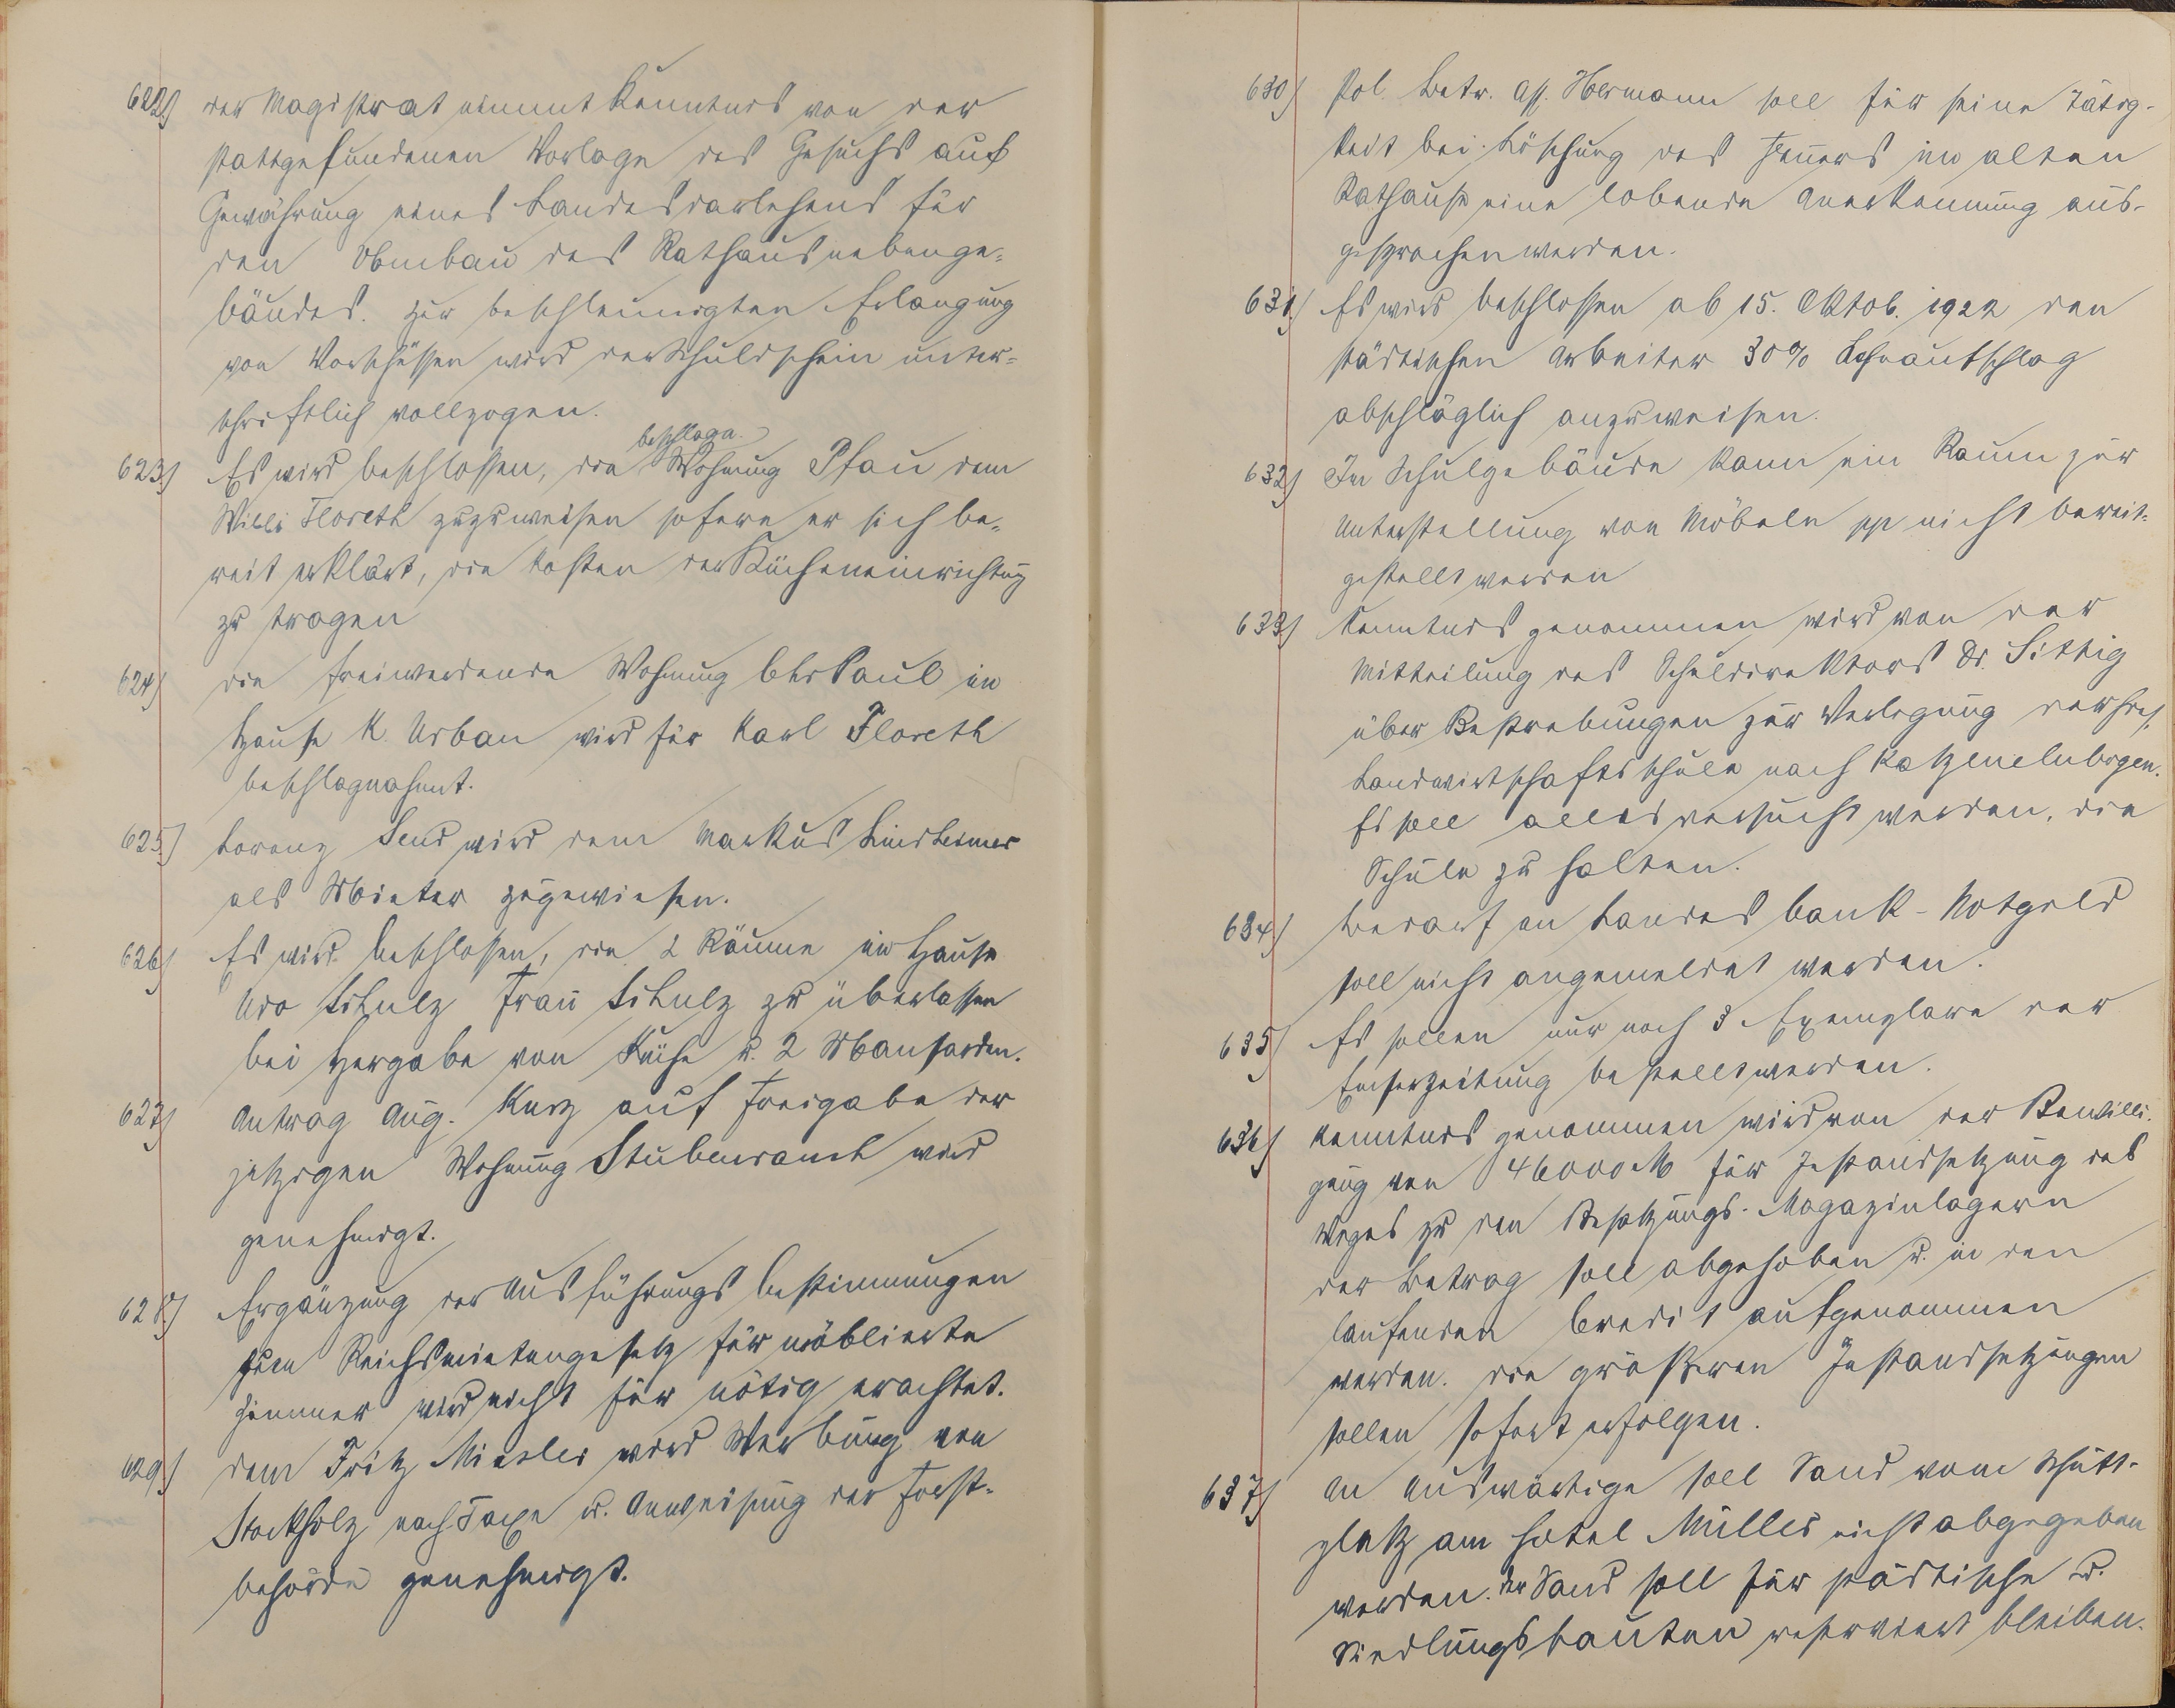 622) der Magistrat nimmt Kenntnis von der
stattgefundenen Vorlage des Gesuchs auf
Gewährung eines Landesdarlehens für
den Umbau des Rathausnebenge=
bäudes. Zur beschleunigten Erlangung
von Vorschüssen wird der Schuldschein unter=
schriftlich vollzogen.
beschlagn.
623) Es wird beschlossen, die Wohnung Pfau dem
Willi Floreth zuzuweisen sofern er sich be=
reit erklärt, die Kosten der Kücheneinrichtung
zu tragen
624) die freiwerdende Wohnung Chr Paul im
Hause K. Urban wird für Karl Floreth
beschlagnahmt.
625) Lorenz wird dem Markus Lindheimer
als Mieter zugewiesen.
626) Es wird beschlossen, die 2 Räume im Hause
Udo Schulz Frau Schulz zu überlassen
bei Hergabe von Küche u. 2 Mansarden.
627) Antrag Aug. Kurz auf Freigabe der
jetzigen Wohnung Stubenrauch wird
genehmigt.
628) Ergänzung der Ausführungsbestimmungen
zum Reichsmietengesetz für möblierte
Zimmer wird nicht für nötig erachtet.
629) dem Fritz wird Werbung von
Stockholz nach Taxe u. Anweisung der Forst-
behörde genehmigt.
630) Pol. Betr. Ass. Hermann soll für seine Tätig-
keit bei Löschung des Feuers im alten
Rathause eine lobende Anerkennung aus-
gesprochen werden.
631) Es wird beschlossen ab 15. Oktob. 1922 den
städtischen Arbeiter 30% Lohnaufschlag
abschläglich anzuweisen.
632) Im Schulgebäude kann ein Raum zur
Unterstellung von Möbeln pp nicht bereit-
gestellt werden
633) Kenntnis genommen wird von der
Mitteilung des Schuldirektors Dr. Sittig
über Bestrebungen zur Verlegung der
Landwirtschaftsschule nach Katzenelnbogen.
Es soll alles versucht werden, die
Schule zu halten.
634) Bedarf an Landesbank-Notgeld
soll nicht angemeldet werden.
635) Es sollen nur noch 3 Exemplare der
Emserzeitung bestellt werden.
636) Kenntnis genommen wird von der Bewilli-
gung von 46000 M für Instandsetzung des
Weges zu den Besatzungs-Magazinlagern
der Betrag soll abgehoben u. in den
laufenden Credit aufgenommen
werden. die größeren Instandsetzungen
sollen sofort erfolgen.
637) An Auswärtige soll Sand vom Schutt-
platz am Hotel Müller nicht abgegeben
werden. der Sand soll für städtische u.
Siedlungsbauten reserviert bleiben.